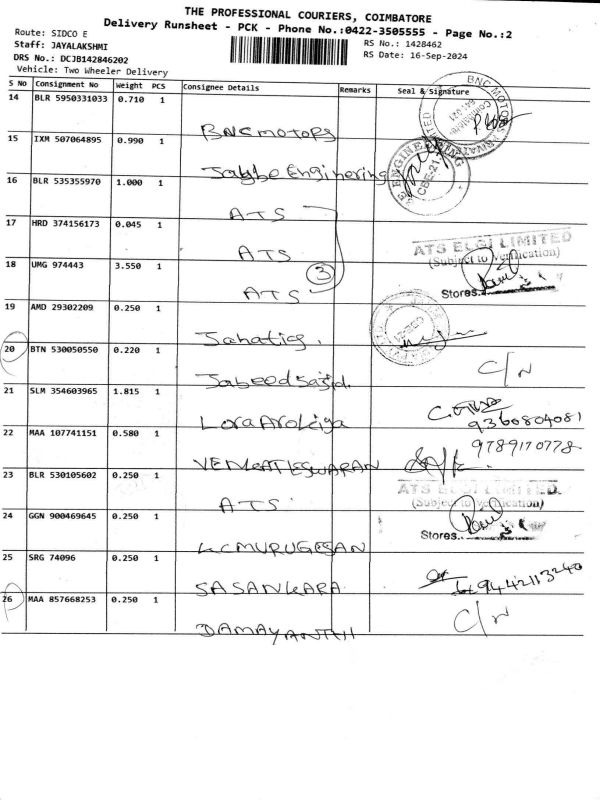 THE PROFESSIONAL COURIERS, COIMBATORE
Delivery Runsheet - PCK - Phone No.:0422-3505555 - Page No.:2
Route: SIDCO E
Staff: JAYALAKSHMI
DRS No.: DCJB142846202
Vehicle: Two Wheeler Delivery
RS No.: 1428462
RS Date: 16-Sep-2024
S No Consignment No Weight PCS Consignee Details Remarks Seal & Signature
14 BLR 5950331033 0.710 1 BNC MOTORS
BNC MOTORS PRIVATE
15 IXM 507064895 0.990 1 Engineering
CBE-21
16 BLR 535355970 1.000 1 ATS
17 HRD 374156173 0.045 1 ATS
ATS ELGI LIMITED
(Subject to verification)
18 UMG 974443 3.550 1 ATS
3
Stores
19 AMD 29302209 0.250 1
20 BTN 530050550 0.220 1 Jabeed Sajid. C/N
21 SLM 354603965 1.815 1 Lora Arokiya
9360804081
22 MAA 107741151 0.580 1 VENKATESWARAN
9789170778
23 BLR 530105602 0.250 1 ATS
ATS ELGI LIMITED.
(Subject to verification)
Stores
24 GGN 900469645 0.250 1 K C MURUGESAN
25 SRG 74096 0.250 1 SASANKARA
9442113240
26 MAA 857668253 0.250 1 DAMAYANTHI C/N